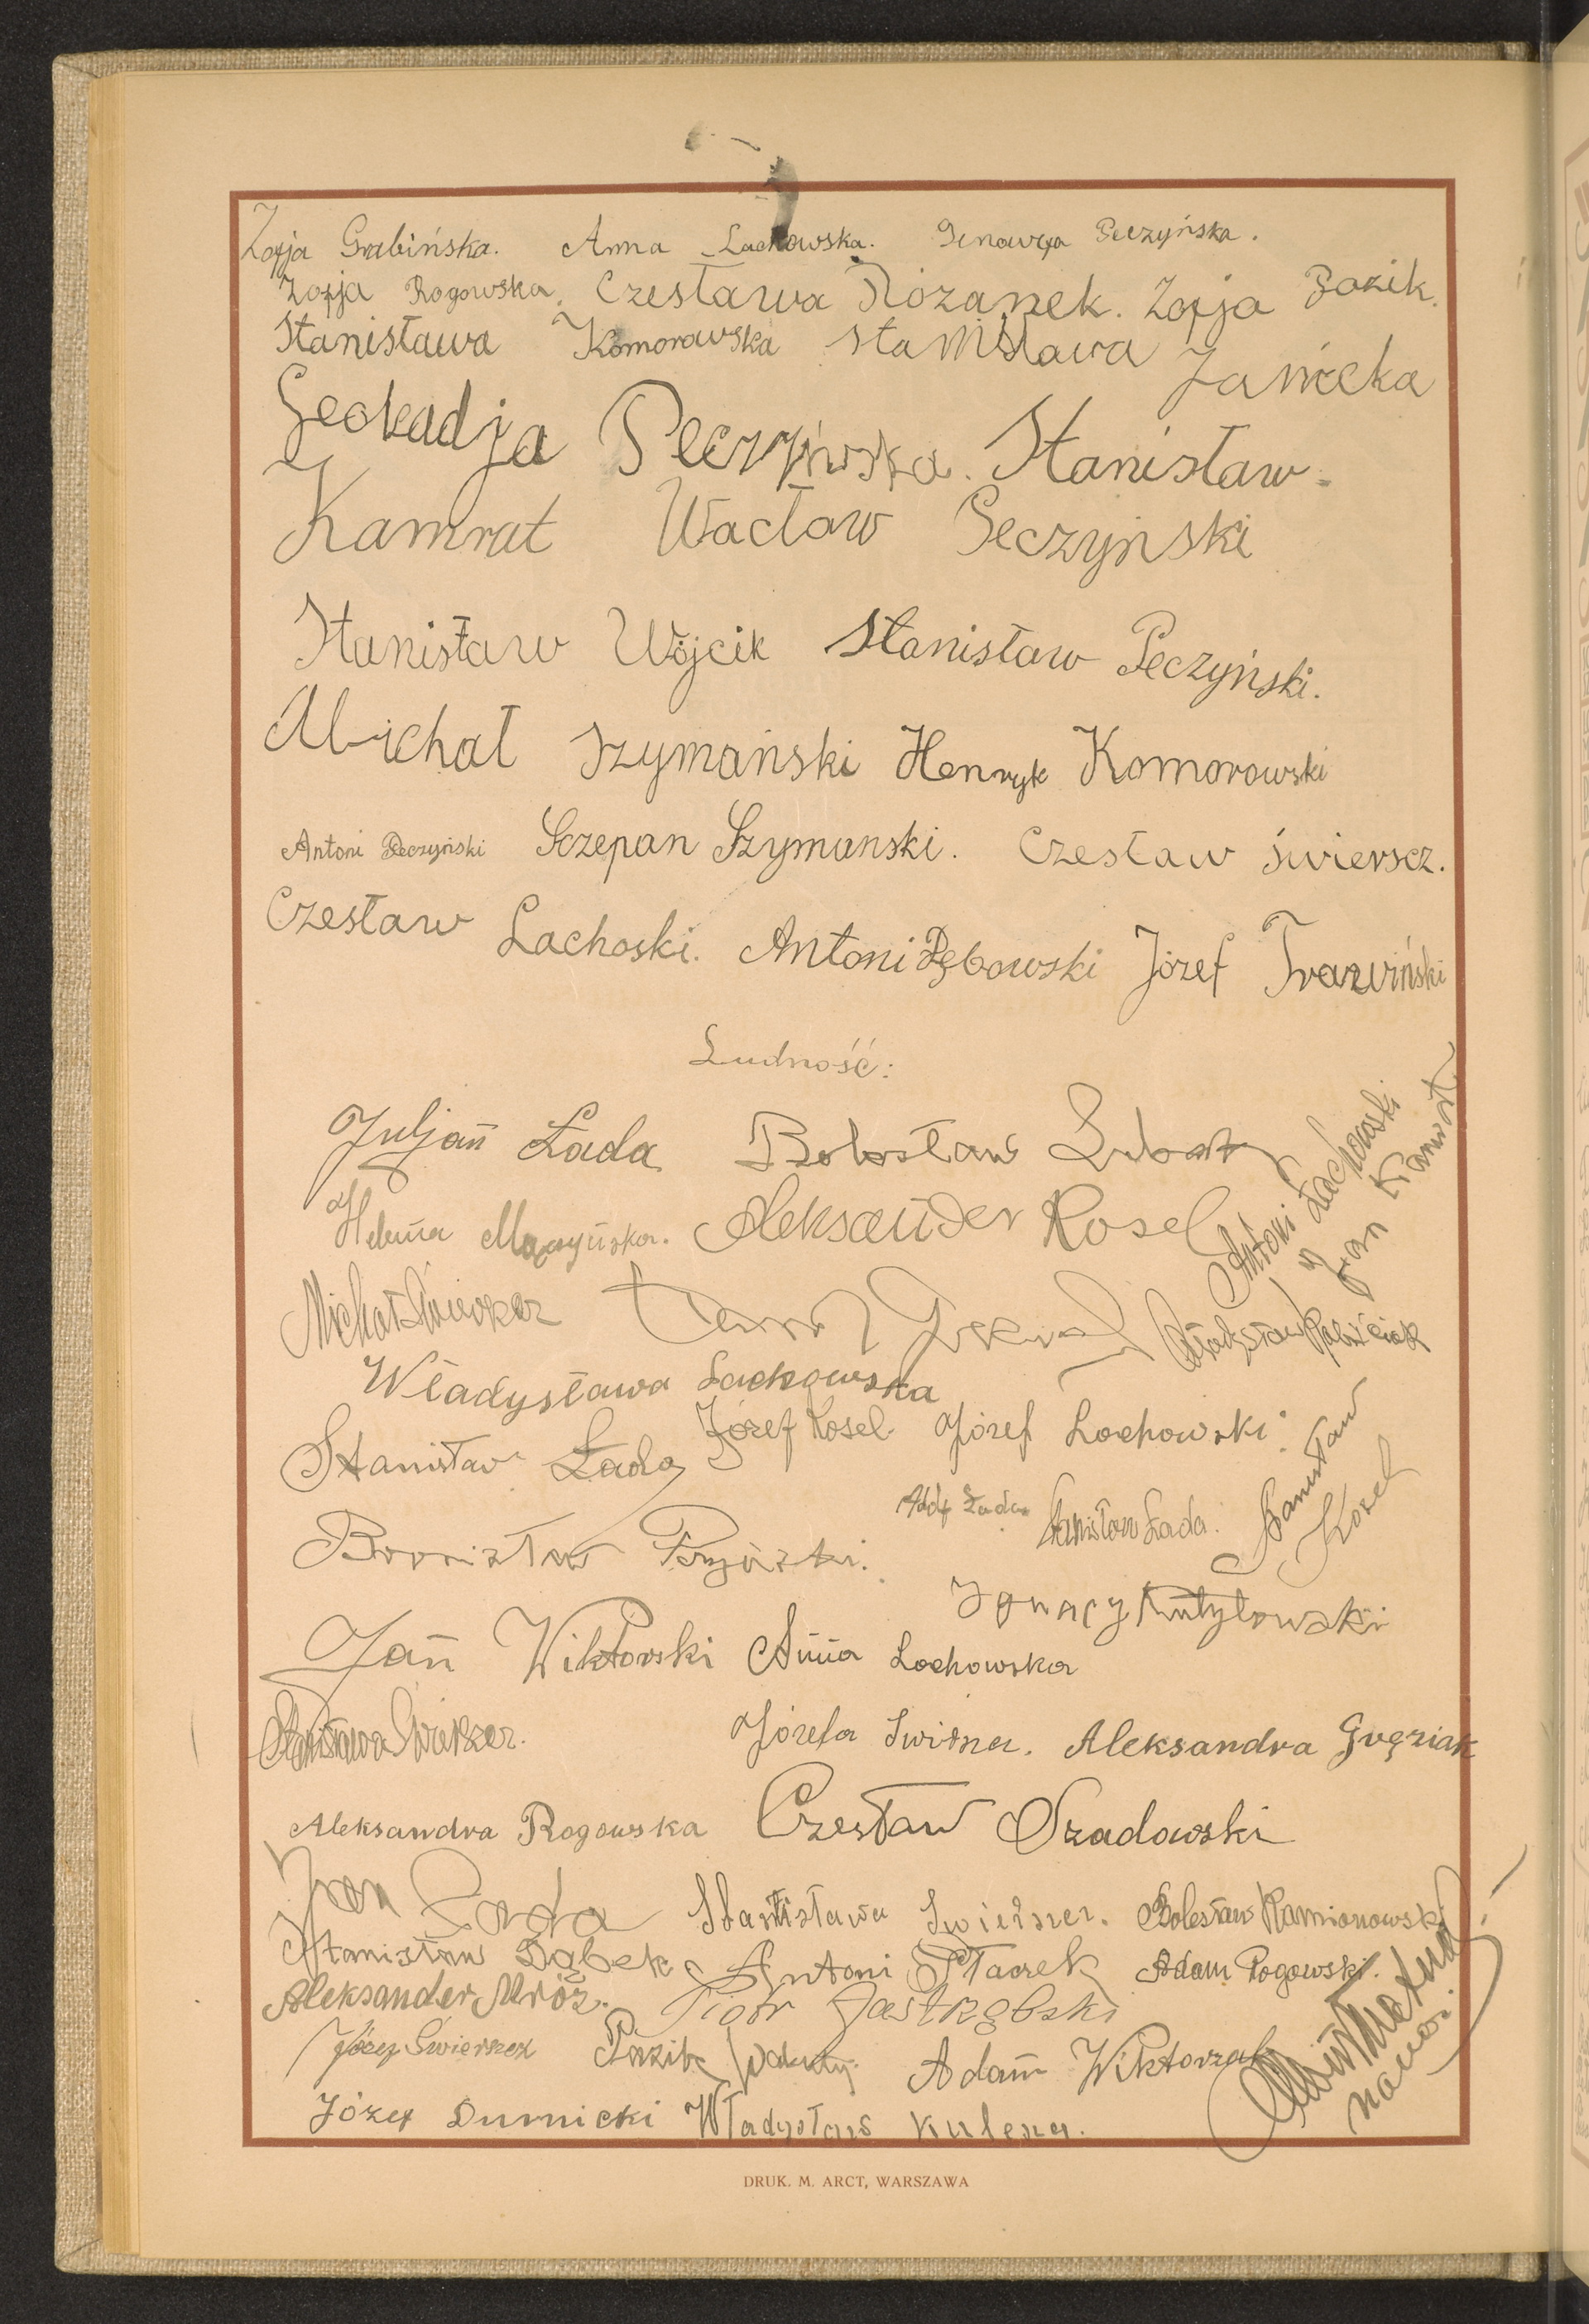 Zofja Grabińska. Anna Lachowska. Genowefa Peczyńska.
Zofja Rogowska. Czesława Rózanek. Zofja Pazik.
Stanisława Komorowska Stanisława Janicka
Leokadja Peczyńska. Stanisław
Kamrat Wacław Peczyński
Stanisław Wójcik Stanisław Peczyński.
Michał Szymański Henryk Komorowski
Antoni Peczyński Sczepan Szymanski. Czesław Świerscz.
Czesław Lachoski. Antoni Dębowski Józef Trawiński
Ludność:
Juljan Łada Bolesław
Antoni Lachowski
Jan Kamrat
Helena Aleksander Kosel
Michał
Władysław
Władysława Lachowska
Józef Kosel Józef Lochowski
Stanisław Łada
Adolf Łada Stanisław Łada.
Stanisław Kosel
Bronisław
Ignacy
Jan Wiktorski Anna Lochowska
Stanisława
Józefa Aleksandra Gręziak
Aleksandra Rogowska Czesław Szadowski
Jan Stanisława Bolesław Kamionowski
Stanisław Dąbek Antoni Ptaszek Adam Rogowski.
Aleksander Mróz. Piotr Jastrzębski
Józef Świerszcz Pazik Adam Wiktorzak
Józef Durnicki Władysław Kulesza.
DRUK. M. ARCT, WARSZAWA